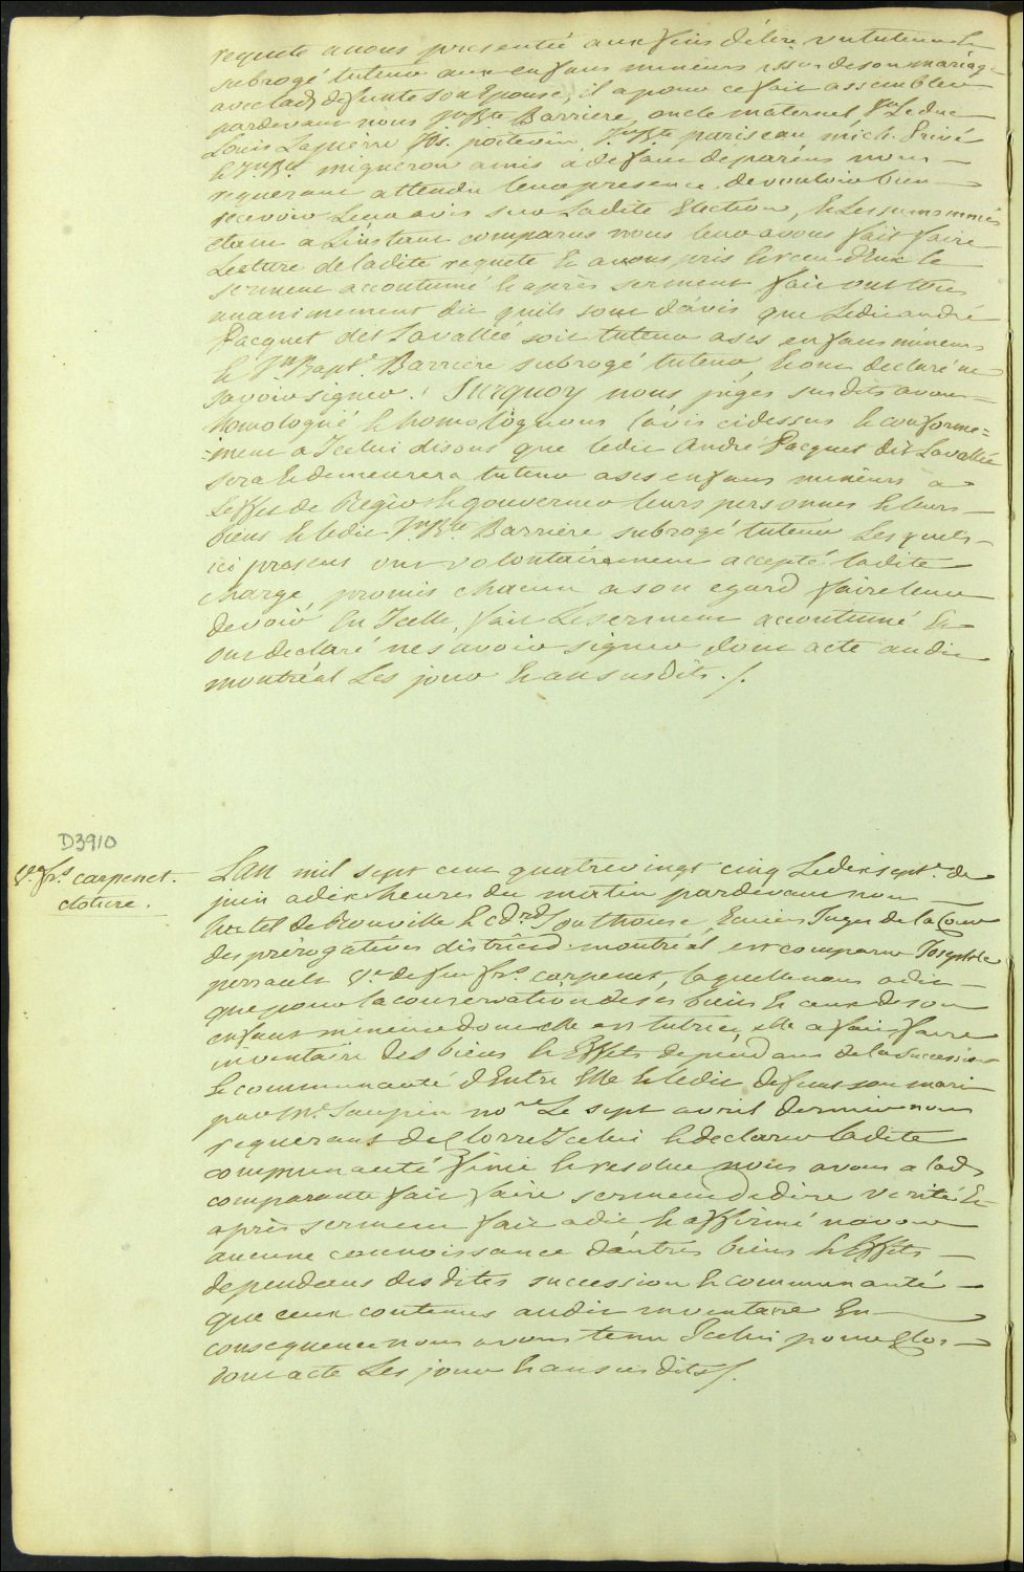 requete a nous presentée aux fins d'élire un tuteur &
subrogé tuteur aux enfans mineurs issus de son mariage
avec lad. defunte son Epouse, il a pour ce fait assembler
pardevant nous Jn Bte Barriere, oncle maternel Leduc
Louis Lapierre Jos. poitevin Jn Bte pariseau, mich.
& Jn Bte migneron amis a defaut de parens nous
requerant attendu leur presence de vouloir bien
recevoir Leur avis sur Ladite Election, & Les susnommés
étant a L'instant comparus nous leur avons fait faire
Lecture de ladite requete & avons pris & reçu d'Eux le
serment accoutumé & après serment fait ont tous
unanimement dit quils sont d'avis que Ledit andré
Pacquet dit Lavallée soit tuteur a ses enfans mineurs
& Jn Bapte. Barriere subrogé tuteur, & ont declaré ne
savoir signer. Surquoy nous juges susdits avons
homologué & homologuons l'avis cidessus & conforme=
=ment a Icelui disons que ledit André Pacquet dit Lavallée
sera & demeurera tuteur a ses enfans mineurs a
L'effet de Regir & gouverner leurs personnes & leurs
biens & ledit Jn Bte Barriere subrogé tuteur Lesquels
ici presens ont volontairement accepté ladite
charge, promis chacun a son egard faire leur
devoir En Icelle, fait Le serment accoutumé &
ont declaré ne savoir signer dont acte audit
montréal Les jour & an susdits ./.
D3910
Ve. frs. carpenet.
cloture.
L'an mil sept cent quatrevingt cinq Le dix sept de
juin a dix heures du matin pardevant nous
hertel de Rouville & Edrd Southouse, Ecuiers Juges de la Cour
des prérogatives district de montréal est comparue Josephte
perrault Ve. de feu frs. carpenet, laquelle nous a dit
que pour la conservation de ses biens & ceux de son
enfant mineur dont elle est tutrice, elle a fait faire
inventaire des biens & Effets dependans de la succession
& communauté d'Entre Elle & ledit defunt son mari
par Me. Soupin nore Le sept avril dernier nous
requerant de Clorre Icelui & declarer ladite
communauté finie & resolue nous avons a lad.
comparante fait faire serment de dire verité &
après serment fait a dit & affirmé n'avoir
aucune connoissance d'autres biens & Effets
dependans desdites succession & communauté
que ceux contenus audit inventaire En
consequence nous avons tenu Icelui pour Clos
dont acte Les jour & an susdits /.